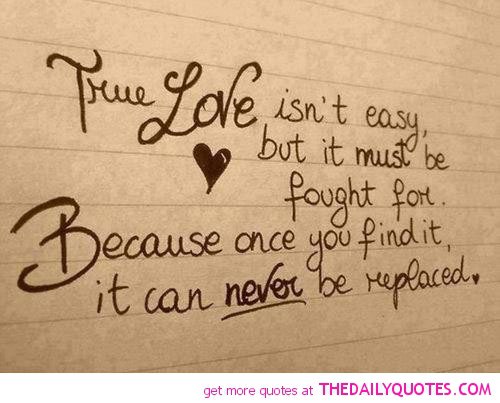 True Love isn't easy,
but it must be
fought for.
Because once you find it,
it can never be replaced.
get more quotes at THEDAILYQUOTES.COM